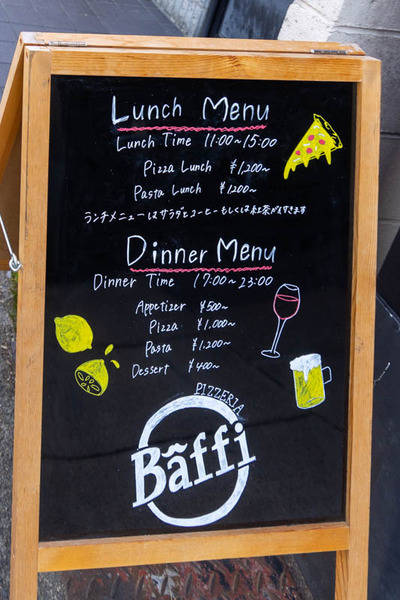 Lunch Menu
Lunch Time 11:00~15:00
Pizza Lunch ¥1,200~
Pasta Lunch ¥1,200~
ランチメニューはサラダとコーヒーもしくは紅茶が付きます
Dinner Menu
Dinner Time 17:00~23:00
Appetizer ¥500~
Pizza ¥1,000~
Pasta ¥1,200~
Dessert ¥400~
PIZZERIA
Bâffi